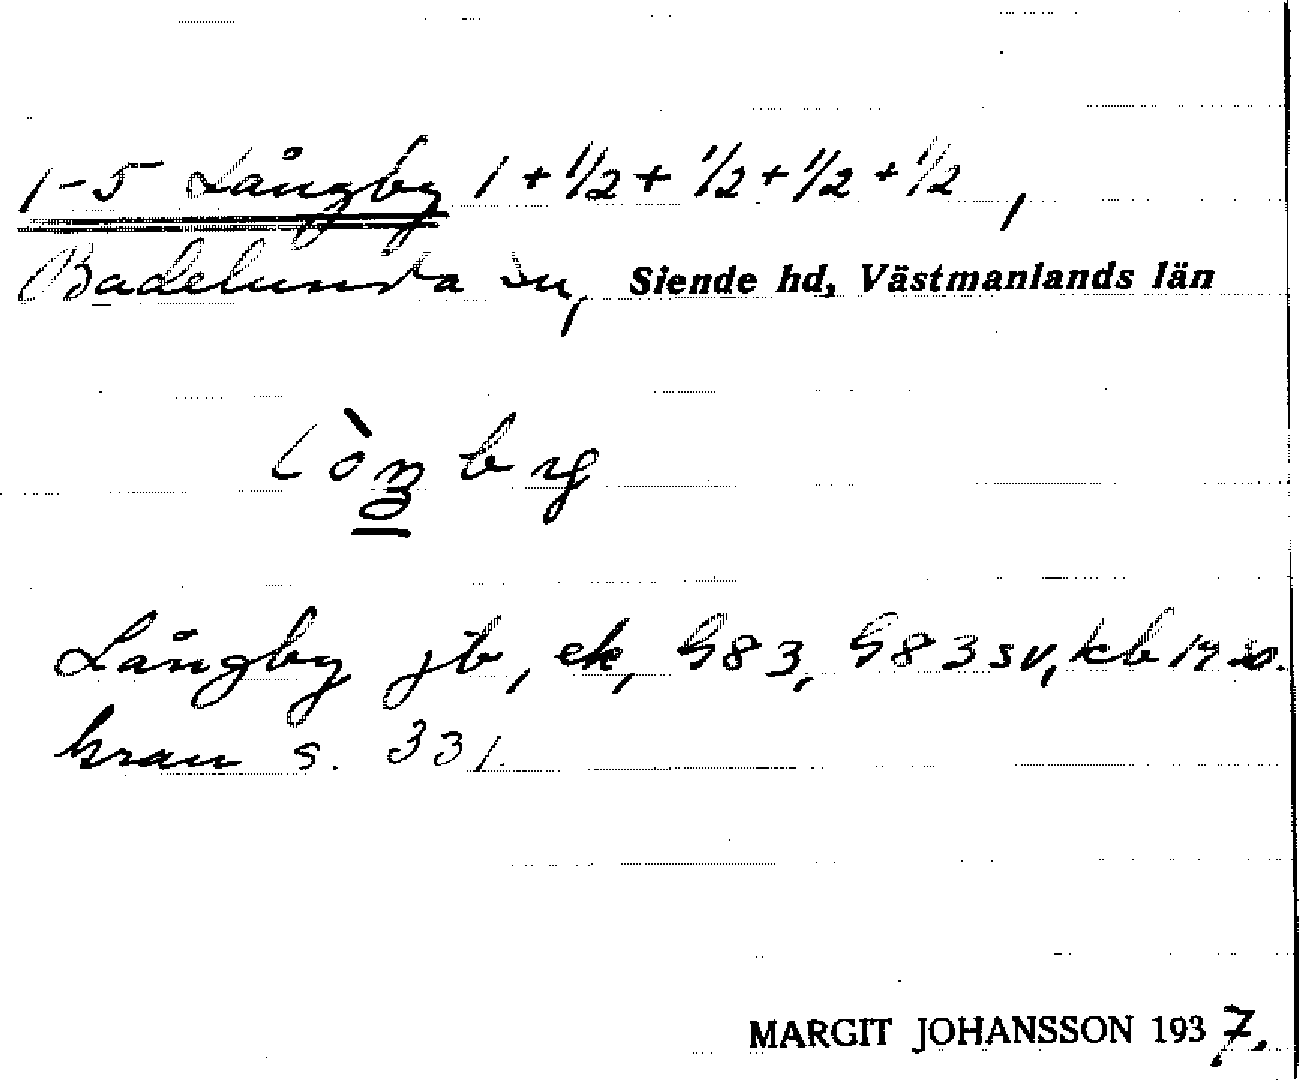 1-5 Långby 1 + 1/2 + 1/2 + 1/2 + 1/2,
Badelunda sn, Siende hd, Västmanlands län
Långby jb, ek, G83, G83 sv, kb
Gran s. 331.
MARGIT JOHANSSON 1937.